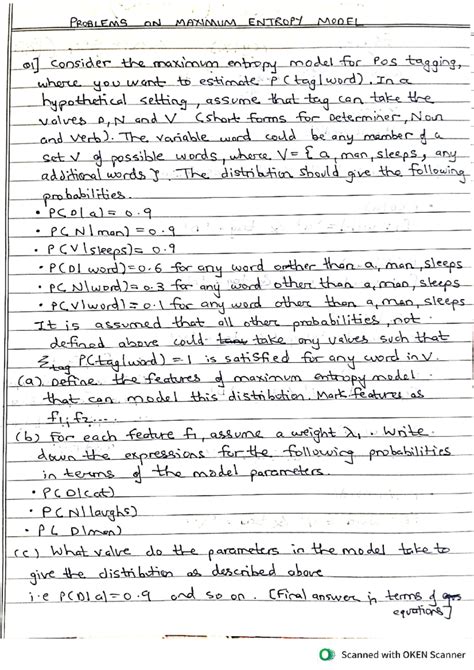 PROBLEMS ON MAXIMUM ENTROPY MODEL
Q1] Consider the maximum entropy model for POS tagging,
where you want to estimate P(tag|word). In a
hypothetical setting, assume that tag can take the
values D, N and V (short forms for Determiner, Noun
and Verb). The variable word could be any member of a
set V of possible words, where V = { a, man, sleeps, any
additional words }. The distribution should give the following
probabilities.
• P(D|a) = 0.9
• P(N|man) = 0.9
• P(V|sleeps) = 0.9
• P(D|word) = 0.6 for any word other than a, man, sleeps
• P(N|word) = 0.3 for any word other than a, man, sleeps
• P(V|word) = 0.1 for any word other than a, man, sleeps
It is assumed that all other probabilities, not
defined above could take any values such that
Σtag P(tag|word) = 1 is satisfied for any word in V.
(a) Define the features of maximum entropy model
that can model this distribution. Mark features as
f1, f2....
(b) For each feature f1, assume a weight λ1. Write
down the expressions for the following probabilities
in terms of the model parameters.
• P(D|cat)
• P(N|laughs)
• P(D|man)
(c) What value do the parameters in the model take to
give the distribution as described above
i.e P(D|a) = 0.9 and so on. [Final answer in terms of
equations]
Scanned with OKEN Scanner